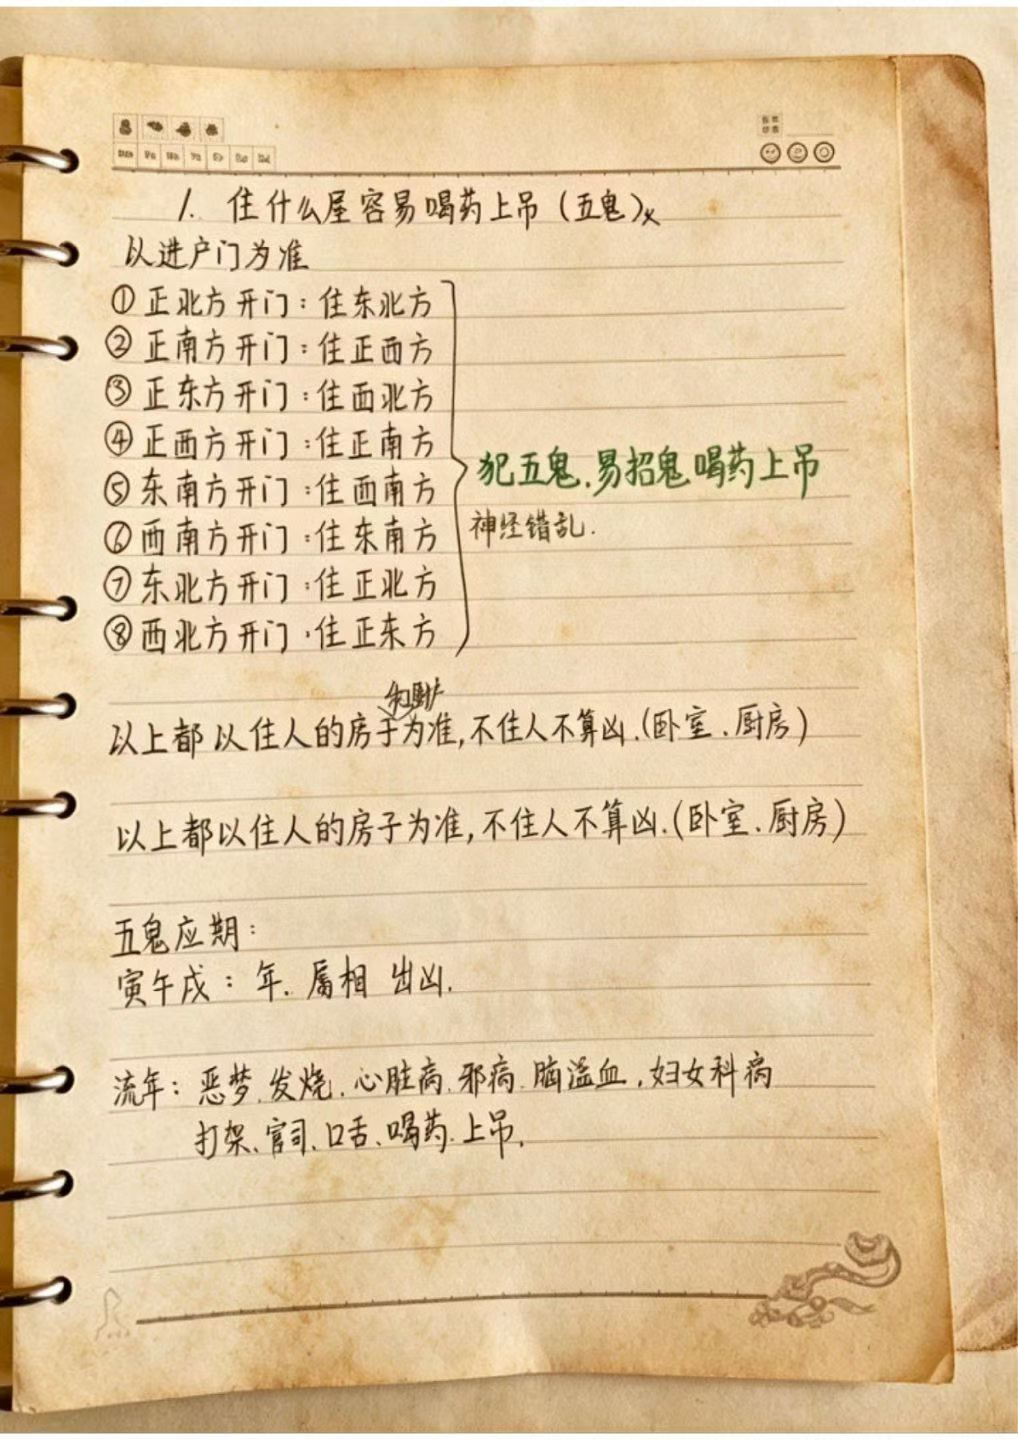 1. 住什么屋容易喝药上吊(五鬼)
以进户门为准
①正北方开门:住东北方
②正南方开门:住正西方
③正东方开门:住西北方
④正西方开门:住正南方
⑤东南方开门:住西南方
⑥西南方开门:住东南方
⑦东北方开门:住正北方
⑧西北方开门.住正东方
犯五鬼.易招鬼喝药上吊
神经错乱.
以上都以住人的房子为准,不住人不算凶.(卧室.厨房)
以上都以住人的房子为准,不住人不算凶.(卧室.厨房)
五鬼应期:
寅午戌:年.属相 出凶.
流年:恶梦.发烧.心脏病.邪病.脑溢血,妇女科病
打架、官司、口舌、喝药.上吊.